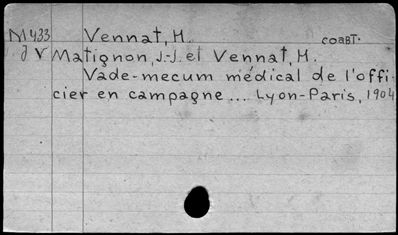 M433 Vennat, H. соавт.
J V Matignon, J.-J. et Vennat, H.
Vade-mecum médical de l'offi-
cier en campagne ... Lyon-Paris, 1904